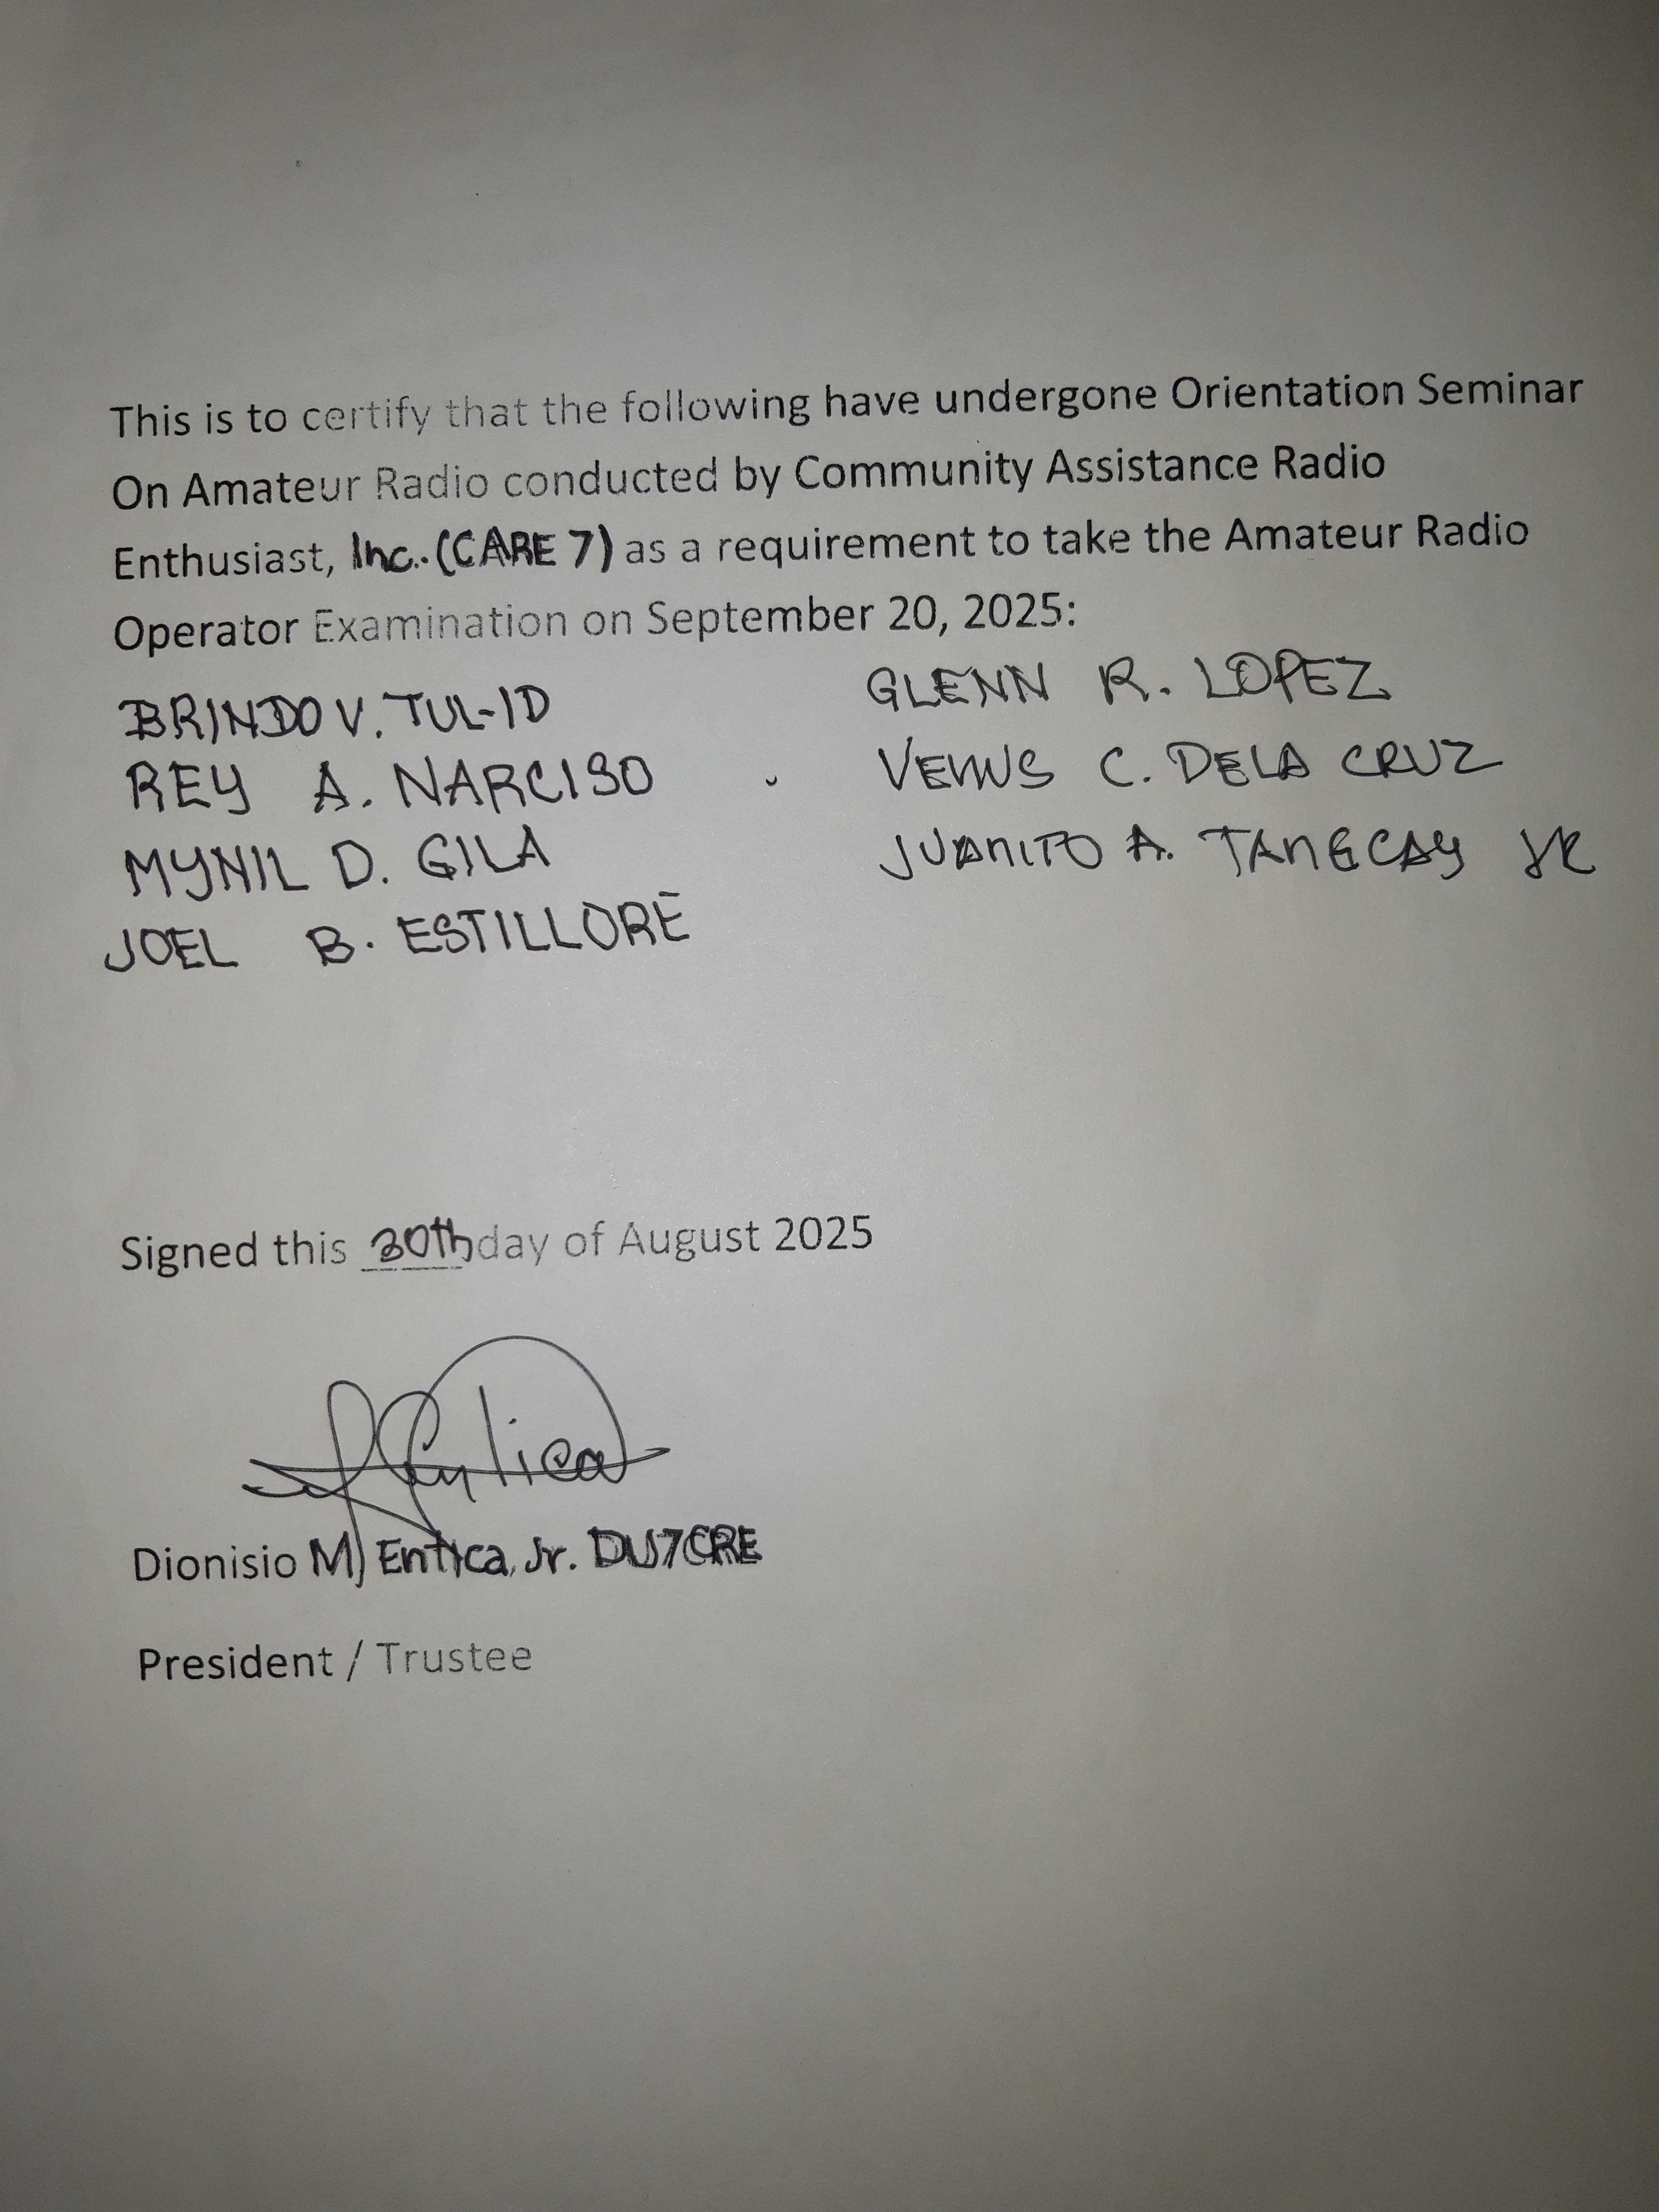 This is to certify that the following have undergone Orientation Seminar
On Amateur Radio conducted by Community Assistance Radio
Enthusiast, Inc. (CARE 7) as a requirement to take the Amateur Radio
Operator Examination on September 20, 2025:
BRINDO V. TUL-ID
REY A. NARCISO
MYNIL D. GILA
JOEL B. ESTILLORE
GLENN R. LOPEZ
VENUS C. DELA CRUZ
JUANITO A. TANGCAY JR
Signed this 30th day of August 2025
Dionisio M. Entica, Jr. DU7CRE
President / Trustee